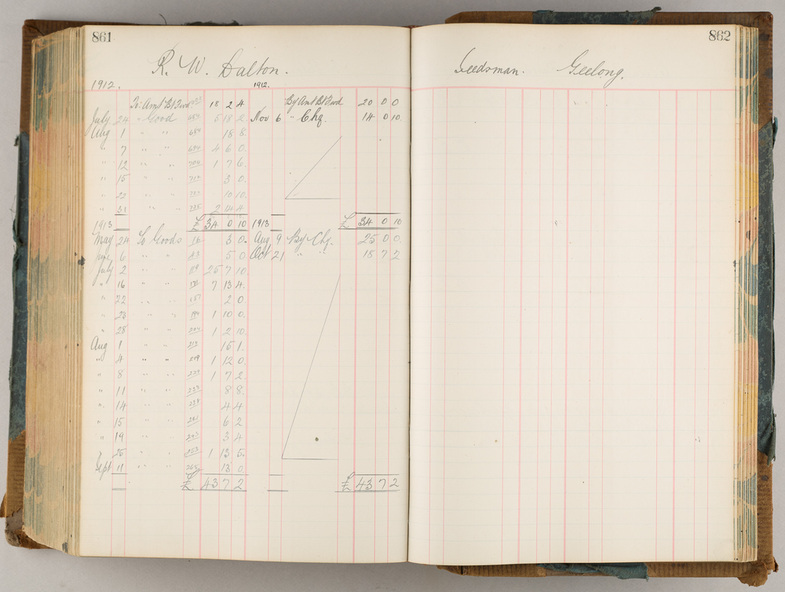 861
R. W. Dalton.
1912. 1912.
To Amt Bt Fwd 18 2 4 By Amt Bt Fwd 20 0 0
July 24 " Good 5 18 2 Nov 6 " Chq. 14 0 10
Aug 1 " " 18 8
" 7 " " 4 6 0
" 12 " " 1 7 6
" 15 " " 3 0
" 22 " " 10 10
" 31 " " 2
£ 34 0 10 £ 34 0 10
1913 1913
May 24 To Goods 3 0 Aug 9 By Chq. 25 0 0
June 6 " " 5 0 Oct 21 " " 18 7 2
July 2 " " 25 7 10
" 16 " " 7 13 4
" 22 " " 2 0
" " " 1 10 0
" 28 " " 1 2 10
Aug 1 " " 15 1
" 4 " " 1 12 0
" 8 " " 1 7 2
" 11 " " 8 8
" 14 " " 4 4
" 15 " " 6 2
" 19 " " 3 4
" 25 " " 1 13 5
Sept 11 " " 13 0
£ 43 7 2 £ 43 7 2
862
Seedsman. Geelong.